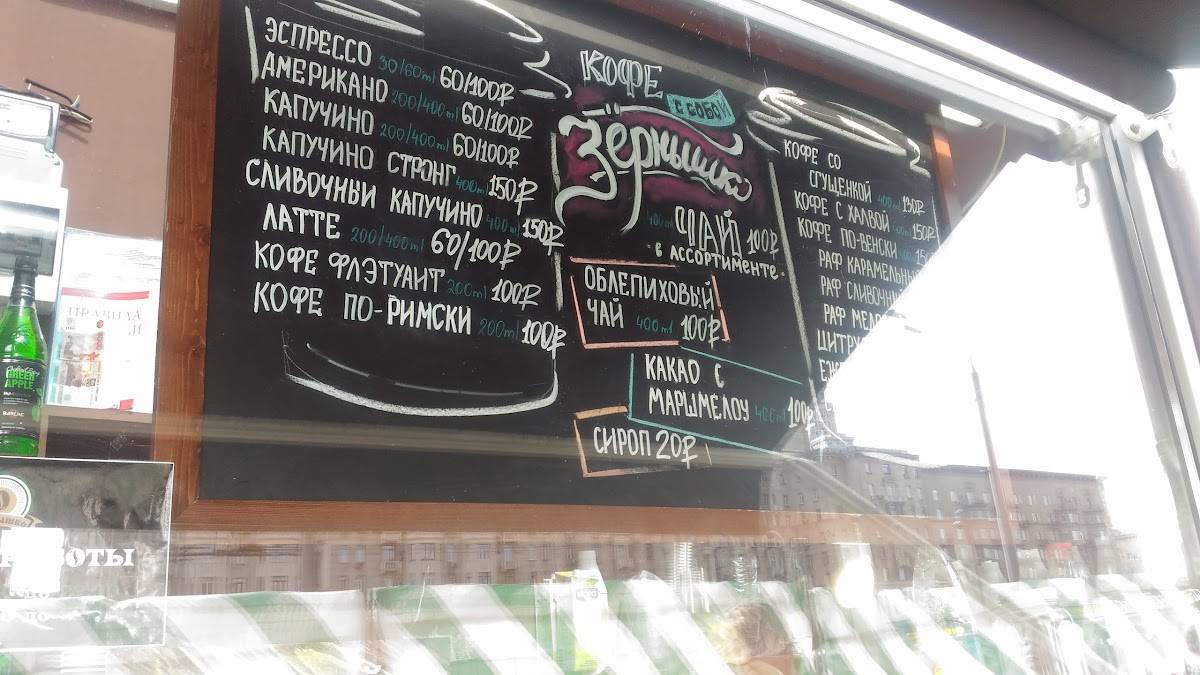 ЭСПРЕССО 30/60ml 60/100₽
АМЕРИКАНО 200/400ml 60/100₽
КАПУЧИНО 200/400ml 60/100₽
КАПУЧИНО СТРОНГ 400ml 150₽
СЛИВОЧНЫЙ КАПУЧИНО 400ml 150₽
ЛАТТЕ 200/400ml 60/100₽
КОФЕ ФЛЭТУАИТ 200ml 100₽
КОФЕ ПО-РИМСКИ 200ml 100₽
КОФЕ
С СОБОЙ
Зёрнышко
400ml ЧАЙ 100₽
В АССОРТИМЕНТЕ
ОБЛЕПИХОВЫЙ
ЧАЙ 400ml 100₽
КАКАО С
МАРШМЕЛОУ 400ml 100₽
СИРОП 20₽
КОФЕ СО
СГУЩЕНКОЙ 400ml 130₽
КОФЕ С ХАЛВОЙ 400ml 150₽
КОФЕ ПО-ВЕНСКИ
РАФ КАРАМЕЛЬНЫЙ
РАФ СЛИВОЧНЫЙ
РАФ
ПРАВИЛА
GREEN
APPLE